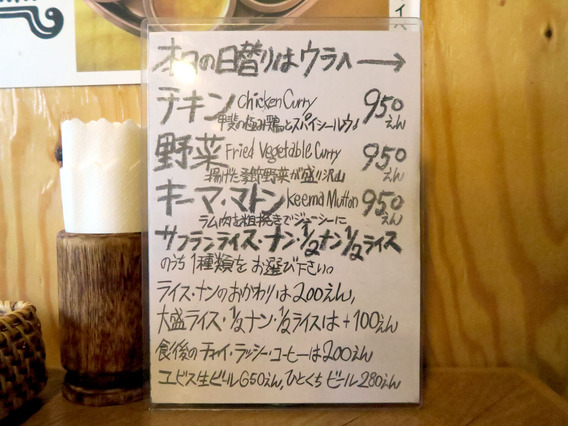 オワの日替りはウラへ→
チキン Chicken Curry 950えん
甲斐の極み鶏とスパイシールウ♪
野菜 Fried Vegetable Curry 950えん
揚げた季節野菜が盛り沢山
キーマ・マトン Keema Mutton 950えん
ラム肉を粗挽きでジューシーに
サフランライス・ナン・½ナン½ライス
のうち1種類をお選び下さい。
ライス・ナンのおかわりは200えん,
大盛ライス・½ナン・½ライスは+100えん
食後のチャイ・ラッシー・コーヒーは200えん
ユビス生ビール650えん,ひとくちビール280えん